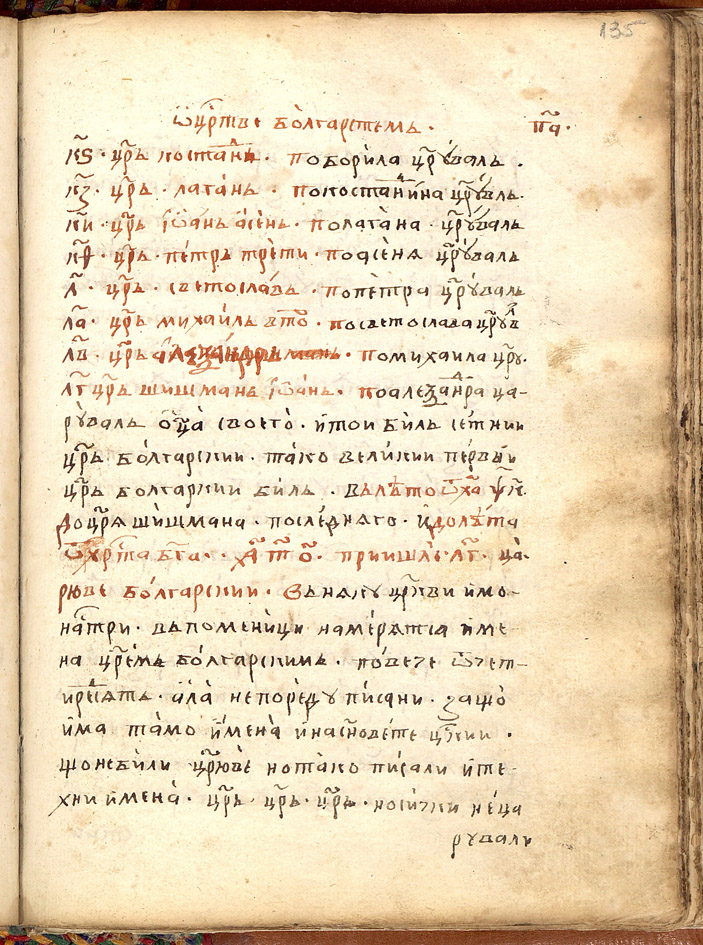 135
ѿцр҃тве бо́лгарстемь · п҃а ·
к҃ѕ · цр҃ь костанⷣинь · по борила цр҃ꙋваль ·
к҃з · цр҃ь · лаганъ · по костанⷣи́на цр҃ꙋвль ·
к҃и · цр҃ь і҆ѡ҃ань а҆сѣнь · по лага́на · цр҃ꙋваль
к҃ѳ · цр҃ь · пе́тръ тре́ти · по асе́ня цр҃ꙋваль
л҃ · цр҃ь · светосла́въ · по пе́тра цр҃ꙋваль
л҃а · цр҃ь михаиль вто҃ · по светослава цр҃ꙋв
л҃в · цр҃ь · по михаила цр҃ꙋ ·
л҃г цр҃ь шишмань і҆ѡ҃ань · по алеѯанⷣра ца-
рꙋваль ѿц҃а своего̀ · и҆ той би́ль се́тнии
цр҃ь · бо́лгарскии · тако вели́кии пе́рвыи
цр҃ь болгарскии би́ль · въ лѣто ѿ ха҃ ѱ҃к ·
до цр҃я шишмана · послѣ́дняго · и҆ до лѣ́та
ѿ хр҃ста бг҃а · ҂а҃ т҃ о҃ · приишлѣ · л҃г · ца-
рюве бо́лгарскии · въ няку цр҃кви и҆ мо-
насⷭ҇три · въ поменици намератсіа и҆ме-
на цр҃емь бо́лгарскимь · по́вече ѿ чет-
иресⷮять · а҆ла̀ не поре́ду пи́сани · защо̀
и҆ма та́мо и҆́мена̀ и҆ на сн҃ове́те цр҃скии ·
що не би́ли цр҃ю́ве но тако писали и҆ те-
хни и҆мена̀ · цр҃ь · цр҃ь · цр҃ь · но си́чки не́ ца
рꙋвали